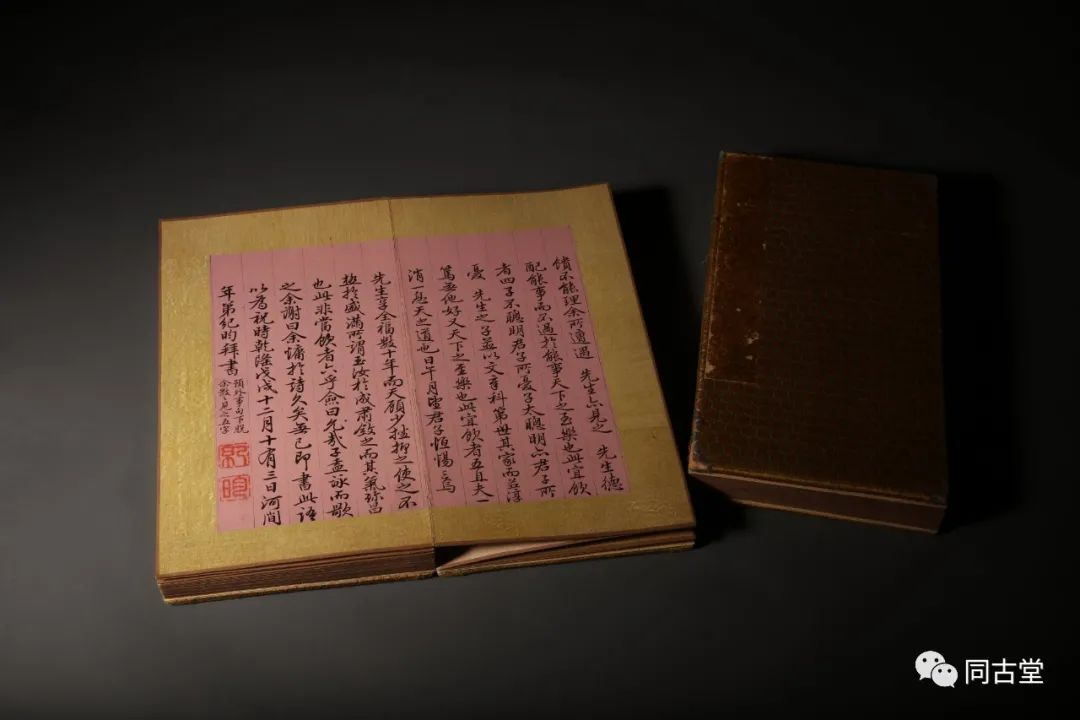 愦不能理余所遭遇 先生亦見之 先生德
配能事而不過於能事天下之至樂也此宜飲
者四子不聰明君子所憂子太聰明亦君子所
憂 先生之子並以文章科第世其家而益淳
篤無他好又天下之至樂也此宜飲者五且夫一
消一息天之道也日午月望君子恒惕惕焉
先生享全福數十年而天顧少挫抑之使之不
極於盛滿所謂玉汝於成肅斂之而其氣弥昌
也此非當飲者六乎僉曰允哉子盍詠而歌
之余謝曰余慵於詩久矣無已即書此語
以為祝時乾隆戊戌十二月十有三日河間
年第紀昀拜書
預外事句下脫
余數見之五字
紀
昀
同古堂